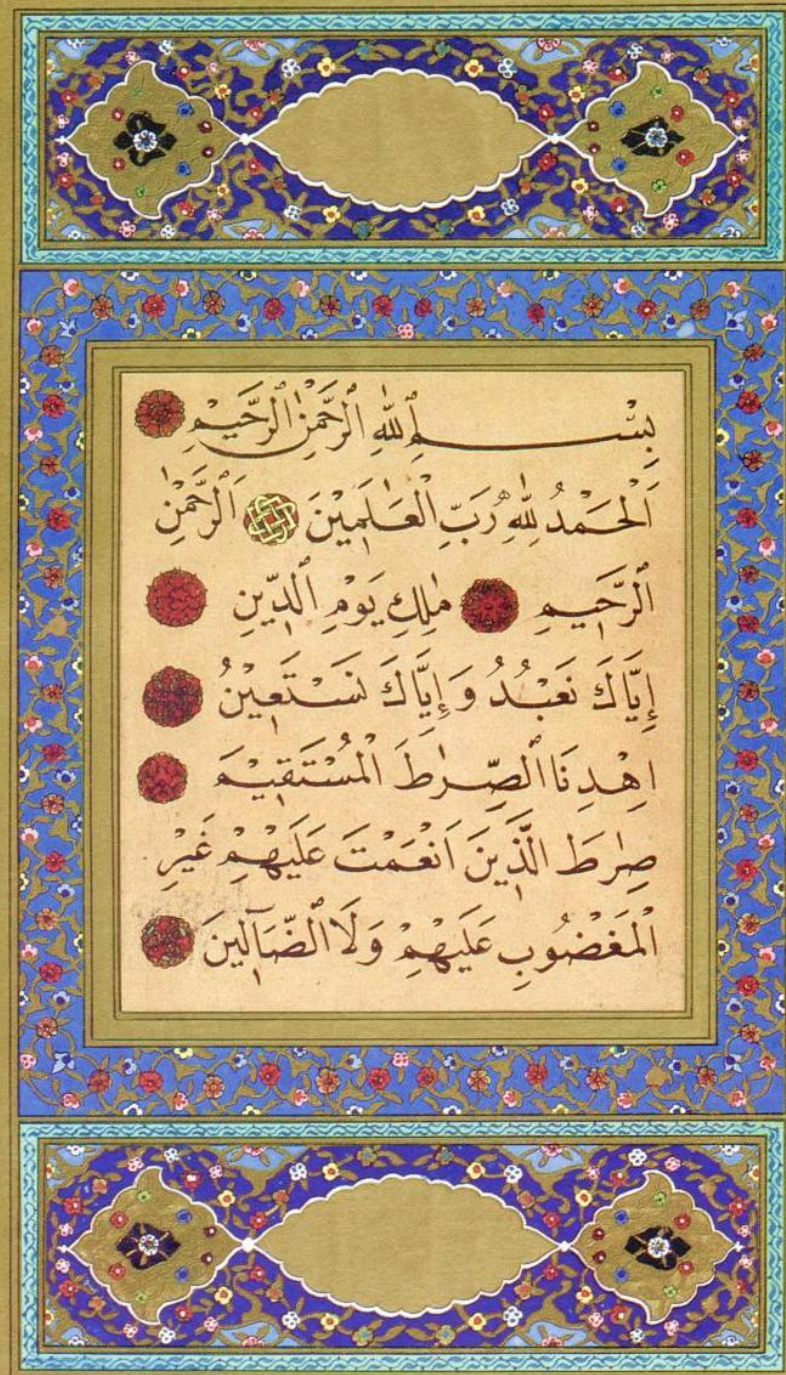 بِسْمِ ٱللّٰهِ ٱلرَّحْمٰنِ ٱلرَّحٖيمِ
اَلْحَمْدُ لِلّٰهِ رَبِّ ٱلْعَالَمٖينَ اَلرَّحْمٰنِ
ٱلرَّحٖيمِ مٰلِكِ يَوْمِ ٱلدّٖينِ
إِيَّاكَ نَعْبُدُ وَإِيَّاكَ نَسْتَعٖينُ
اِهْدِنَا ٱلصِّرَاطَ ٱلْمُسْتَقٖيمَ
صِرَاطَ ٱلَّذٖينَ اَنْعَمْتَ عَلَيْهِمْ غَيْرِ
ٱلْمَغْضُوبِ عَلَيْهِمْ وَلَا ٱلضَّٓالّٖينَ